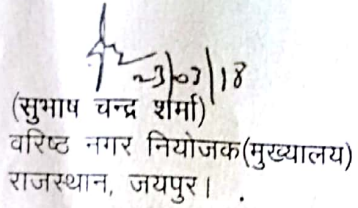 23/03/18
(सुभाष चन्द्र शर्मा)
वरिष्ठ नगर नियोजक(मुख्यालय)
राजस्थान, जयपुर।